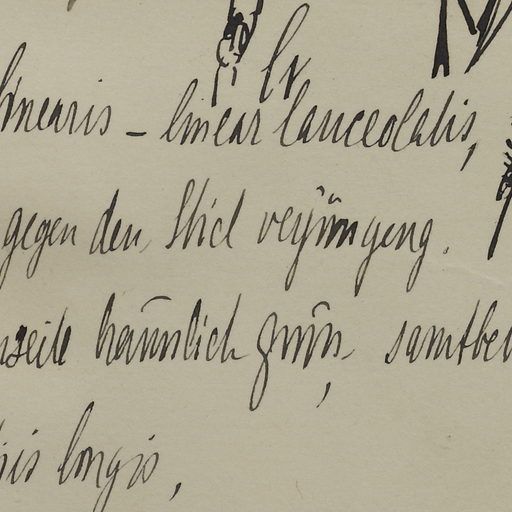 lr
linearis – linear lanceolatis,
gegen den Stiel verjüngeng.
seite bräunlich grün, samtbe
is longis,